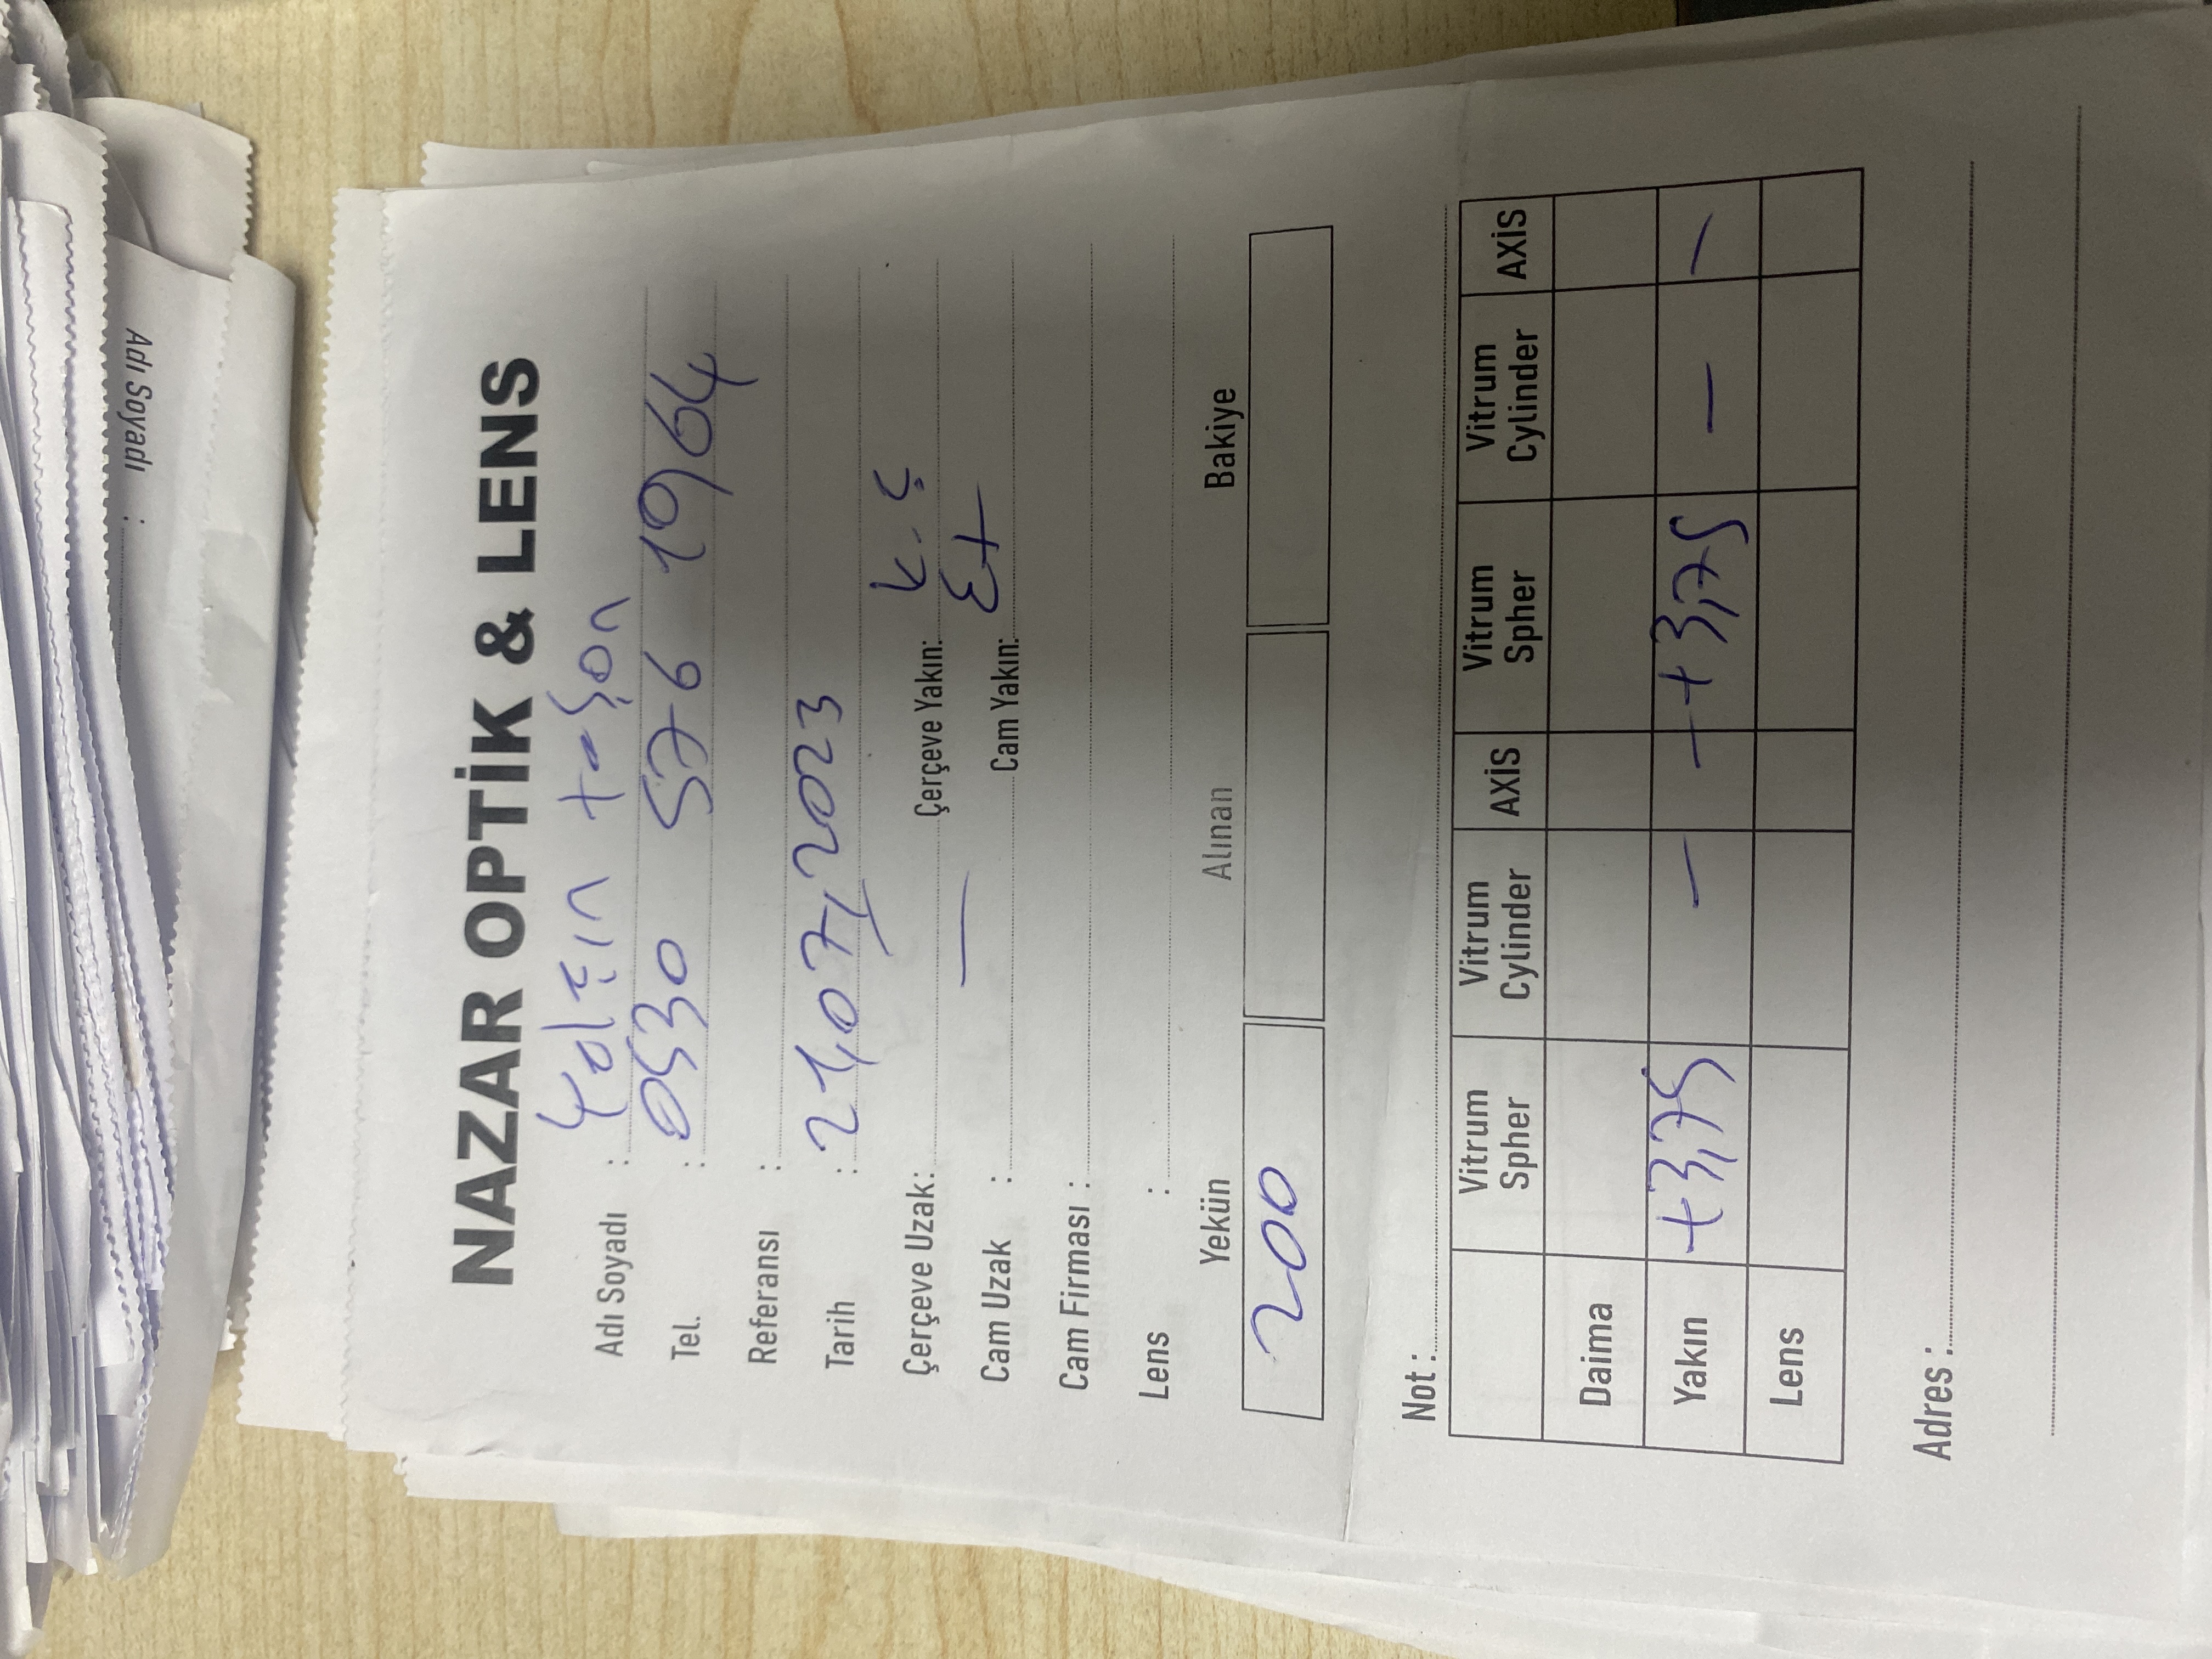 Adı Soyadı :
NAZAR OPTİK & LENS
Adı Soyadı : Yalçın taşan
Tel. : 0530 576 1964
Referansı :
Tarih : 21,07,2023
Çerçeve Uzak: Çerçeve Yakın: K.Ç
Cam Uzak : — Cam Yakın:
Cam Firması :
Lens :
Yekün Alınan Bakiye
200
Not :
Vitrum Spher Vitrum Cylinder AXİS Vitrum Spher Vitrum Cylinder AXİS
Daima
Yakın +3,75 — — +3,75 — —
Lens
Adres :